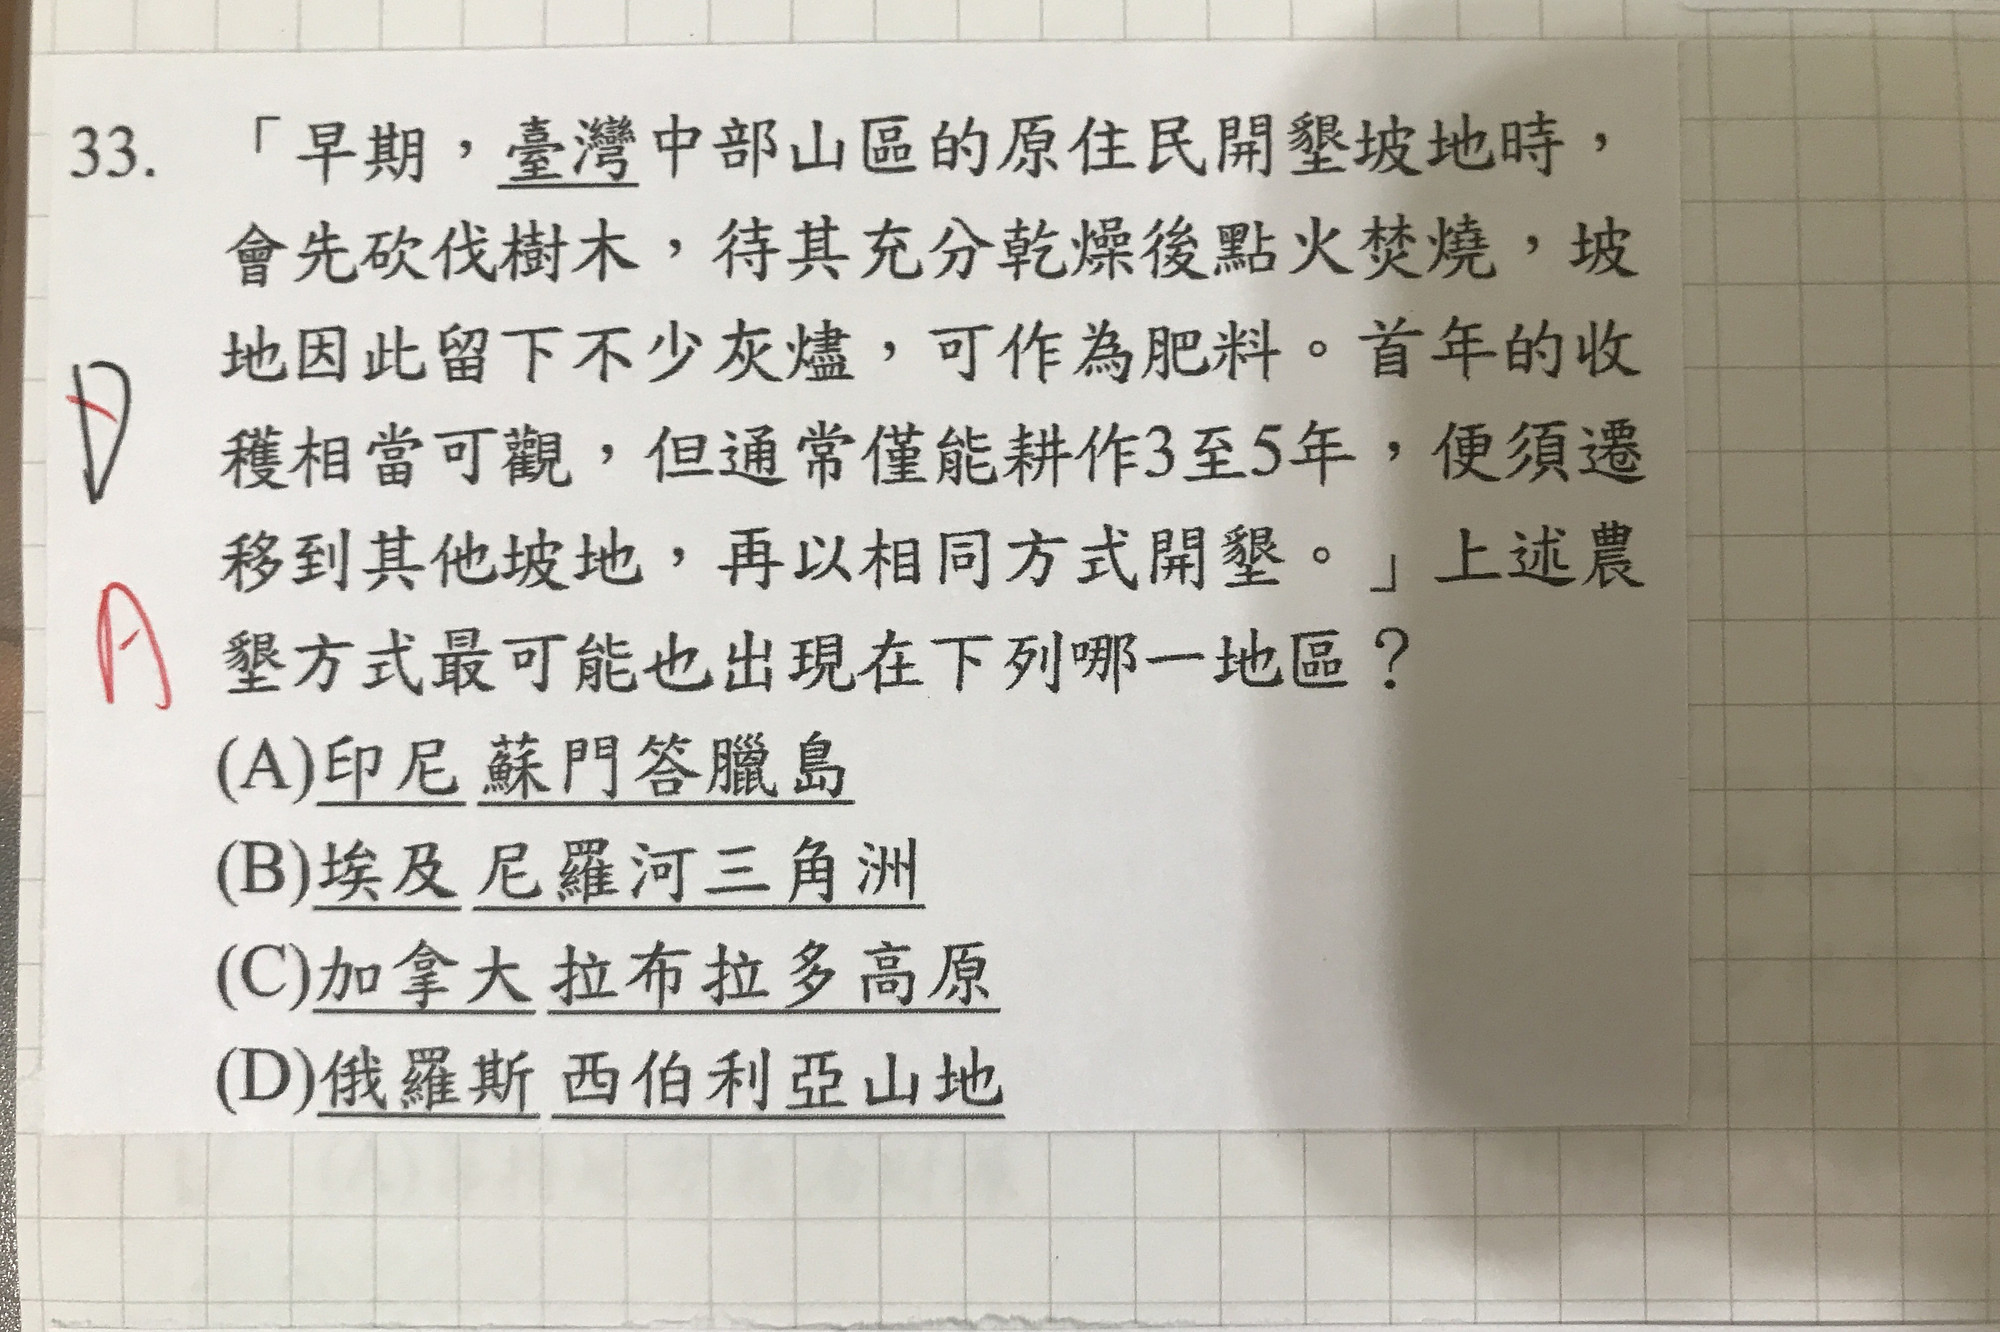 33. 「早期，臺灣中部山區的原住民開墾坡地時，
會先砍伐樹木，待其充分乾燥後點火焚燒，坡
地因此留下不少灰燼，可作為肥料。首年的收
穫相當可觀，但通常僅能耕作3至5年，便須遷
移到其他坡地，再以相同方式開墾。」上述農
墾方式最可能也出現在下列哪一地區？
(A)印尼 蘇門答臘島
(B)埃及 尼羅河三角洲
(C)加拿大 拉布拉多高原
(D)俄羅斯 西伯利亞山地
D
A